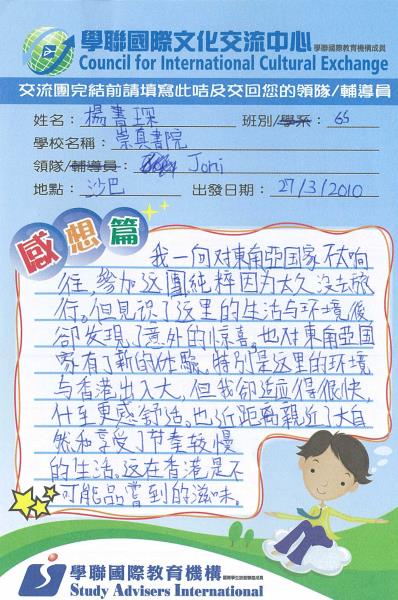 學聯國際文化交流中心 學聯國際教育機構成員
Council for International Cultural Exchange
交流團完結前請填寫此咭及交回您的領隊/輔導員
姓名： 楊書琛 班別/學系： 6S
學校名稱： 崇真書院
領隊/輔導員： Joni
地點： 沙巴 出發日期： 27/3/2010
感想篇
我一向对東角亞国家不太响
往，參加这團純粹因为太久没去旅
行。但見识了这里的生活与环境後
卻发現了意外的惊喜，也对東角亞国
家有了新的体驗。特別是这里的环境
与香港出入大，但我卻适应得很快，
什至更感舒适。也近距離親近了大自
然和享受了节奏較慢
的生活。这在香港是不
可能品嘗到的滋味。
學聯國際教育機構
Study Advisers International